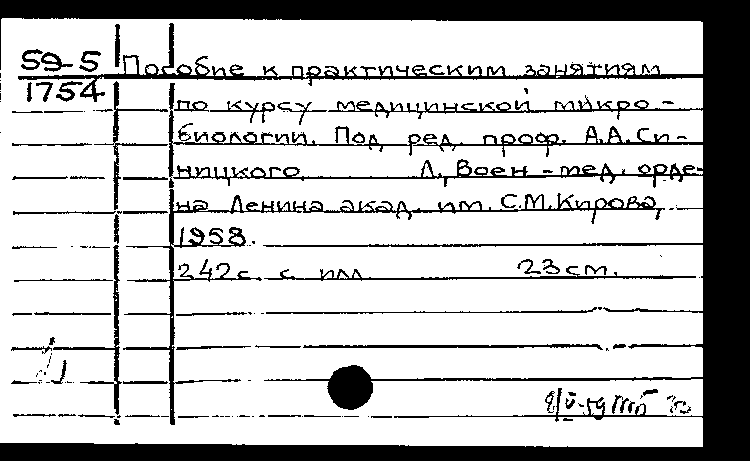 59-5
1754
Пособие к практическим занятиям
по курсу медицинской микро-
биологии. Под ред. проф. А.А.Си-
ницкого. Л., Воен-мед. орде-
на Ленина акад. им. С.М.Кирова,
1958.
242с. с илл. 23см.